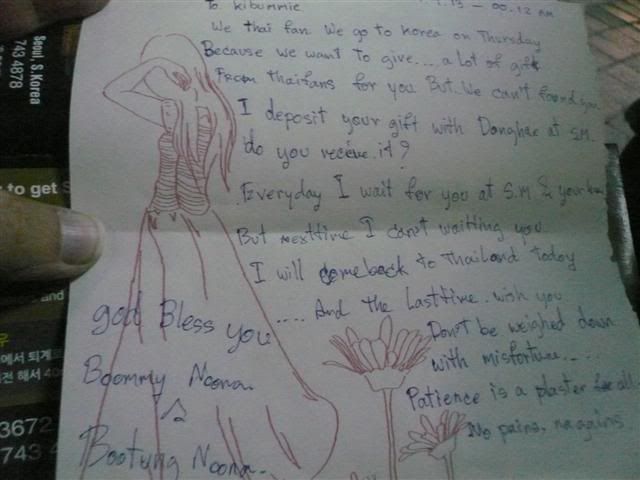 To. kibummie
.13 - 00.12 AM
We thai fan. We go to korea on Thursday
Because we want to give.... a lot of gift
From thaifans for you But.. We can't found you
I deposit your gift with Donghae at S.M.
do you receive it?
Everyday I wait for you at S.M &
But nexttime I can't waitting you
I will comeback to thailand today
..... And the Lasttime. wish you
god Bless you
Don't be weighed down
with misfortune.....
Boommy Noona.
Patience is a plaster for all
No pains, no gains
Bootung Noona..
Seoul, s.Korea
743 4878
to get S
and
에서 퇴계
전 해서 40
3672
743 4